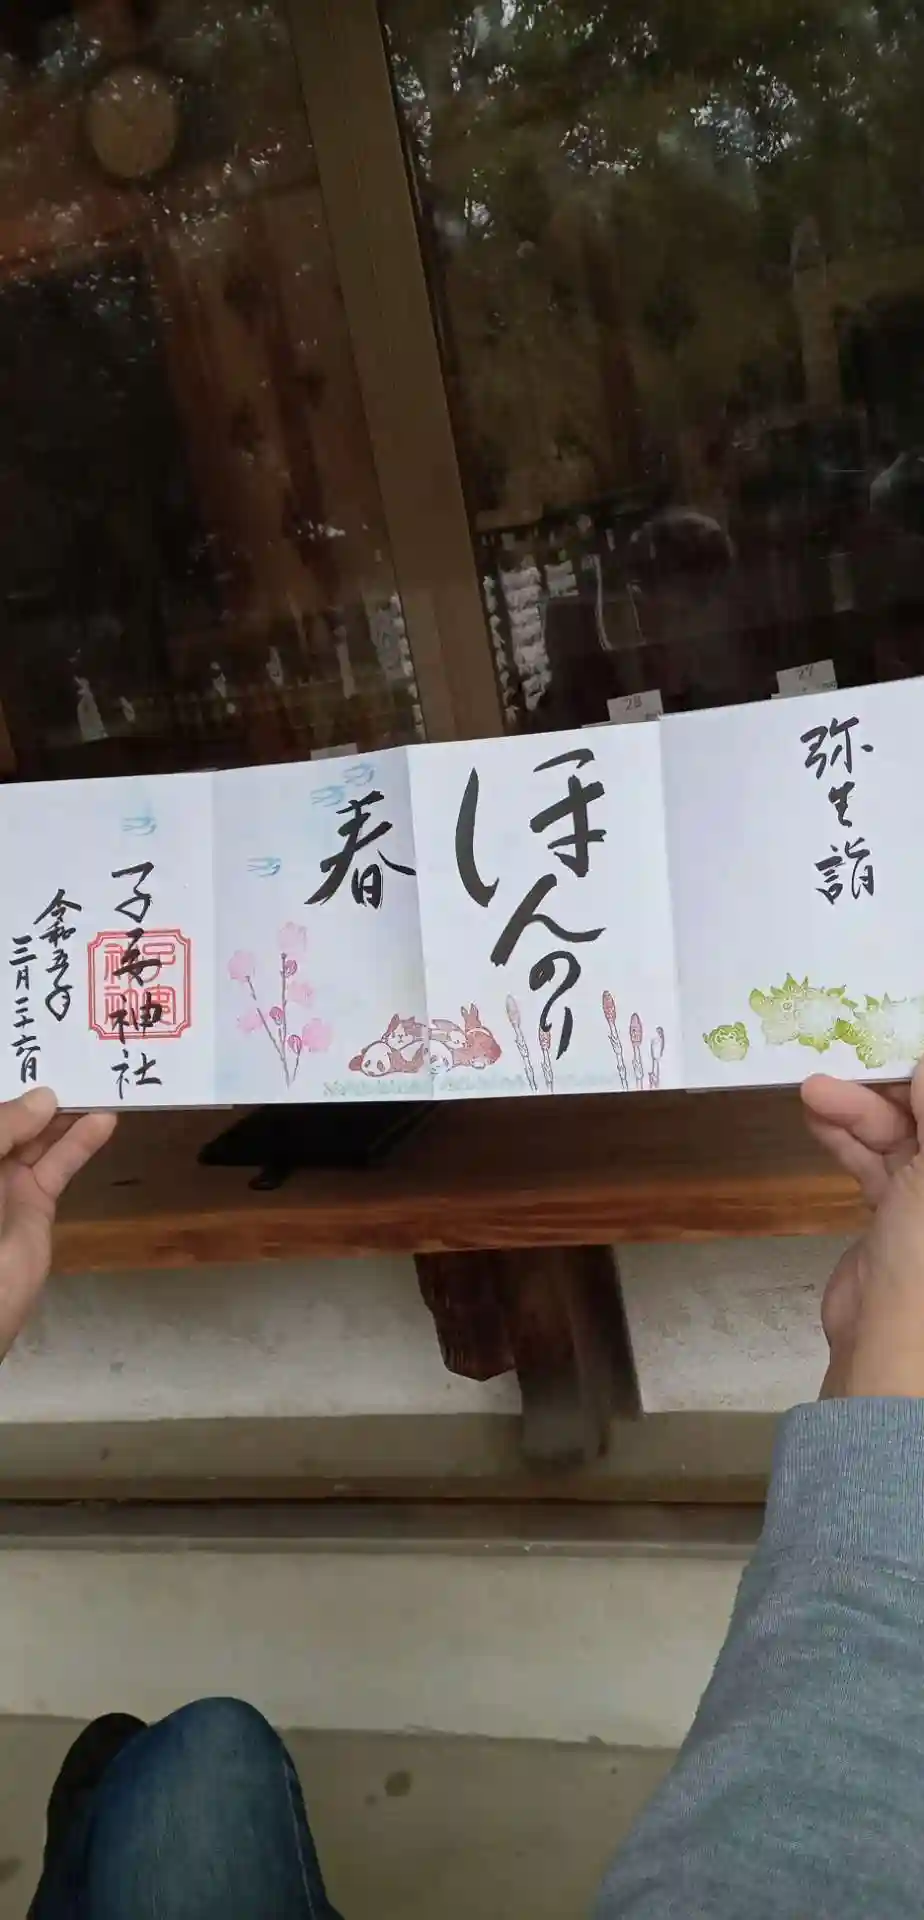 弥生詣
ほんのり
春
子安神社
令和五年
三月二十六日
28
27